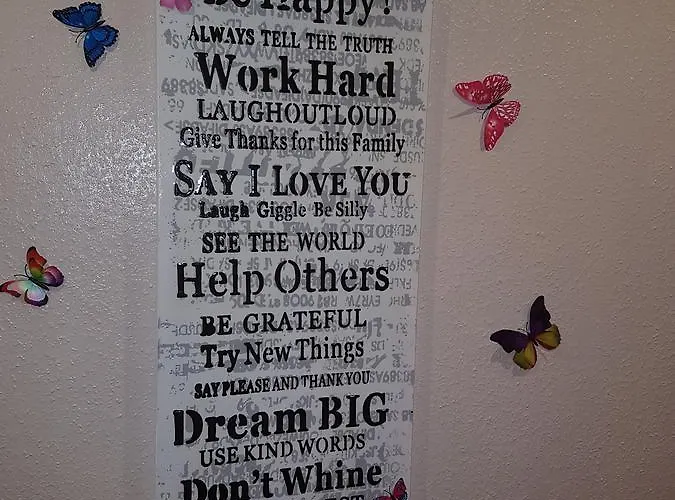 Be Happy!
ALWAYS TELL THE TRUTH
Work Hard
LAUGHOUTLOUD
Give Thanks for this Family
SAY I LOVE YOU
Laugh Giggle Be Silly
SEE THE WORLD
Help Others
BE GRATEFUL
Try New Things
SAY PLEASE AND THANK YOU
Dream BIG
USE KIND WORDS
Don't Whine